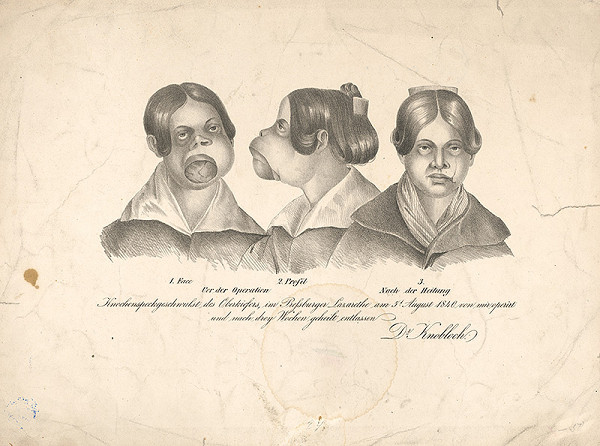 1. Face 2. Profil 3.
Vor der Operation Nach der Heilung
Knochenspeckgeschwulst des Oberkiefers, im Preßburger Lazarethe am 5t August 1840 von mir operirt
und nach drey Wochen geheilt entlassen
Dr Knobloch.